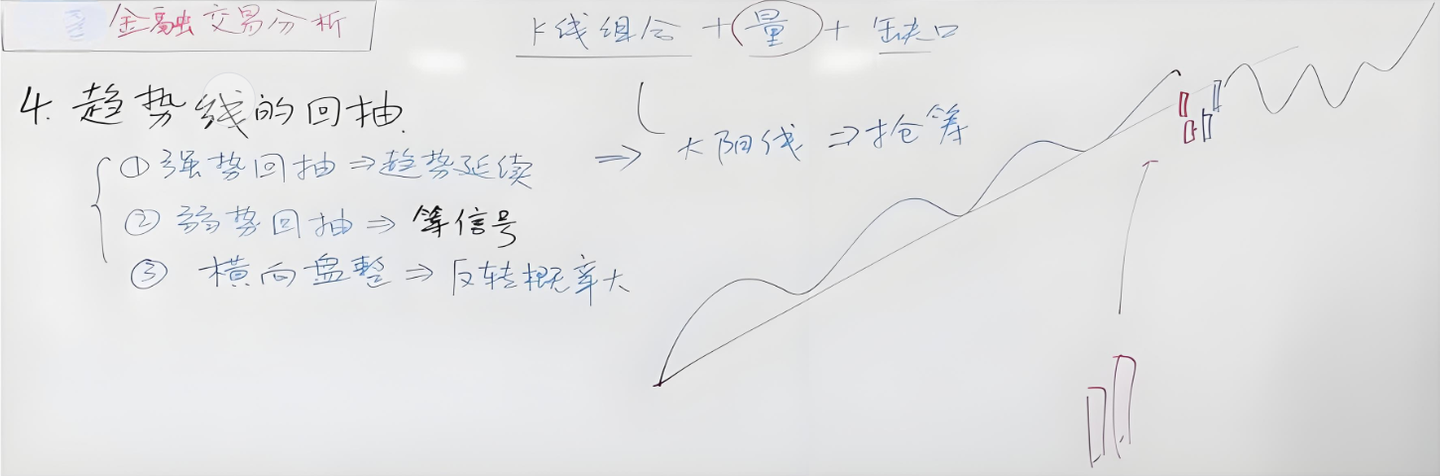 金融交易分析
K线组合 + 量 + 缺口
4. 趋势线的回抽.
① 强势回抽 ⇒ 趋势延续 ⇒ 大阳线 ⇒ 抢筹
② 弱势回抽 ⇒ 等信号
③ 横向盘整 ⇒ 反转概率大